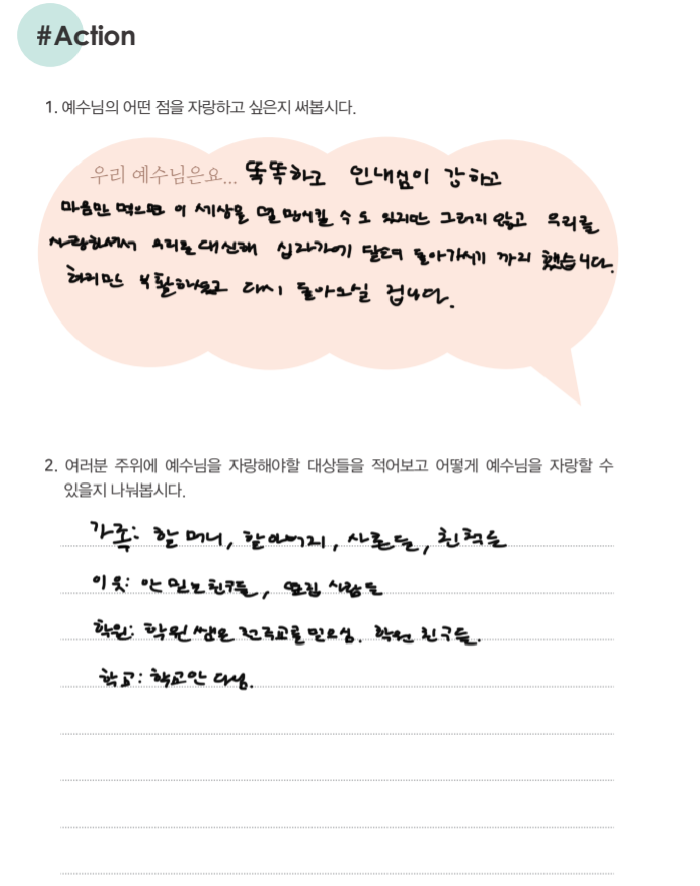 #Action
1. 예수님의 어떤 점을 자랑하고 싶은지 써봅시다.
우리 예수님은요... 똑똑하고 인내심이 강하고
마음만 먹으면 이 세상을 멸망시킬 수 도 있지만 그러지 않고 우리를
사랑하셔서 우리를 대신해 십자가에 달려 돌아가시기 까지 했습니다.
하지만 부활하셨고 다시 돌아오실 겁니다.
2. 여러분 주위에 예수님을 자랑해야할 대상들을 적어보고 어떻게 예수님을 자랑할 수
있을지 나눠봅시다.
가족: 할머니, 할아버지, 사촌들, 친척들
이웃: 안 믿는 친구들, 옆집 사람들
학원: 학원쌤은 천주교를 믿으심. 학원 친구들.
학교: 학교안 다님.